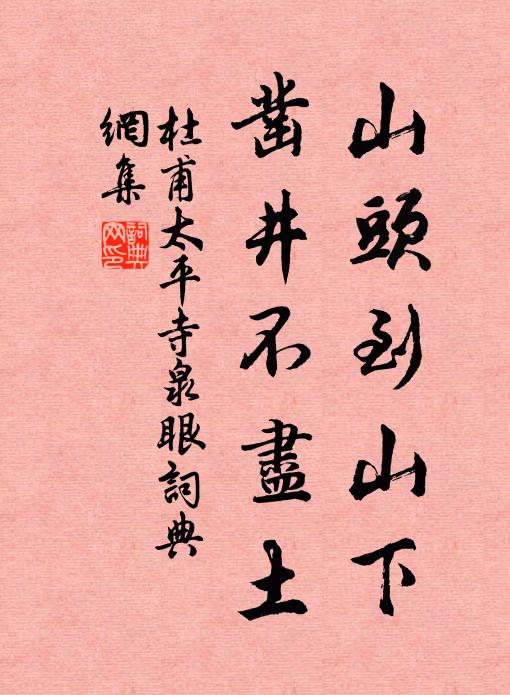 山頭到山下
鑿井不盡土
杜甫太平寺泉眼詞典
網集
詞典网印